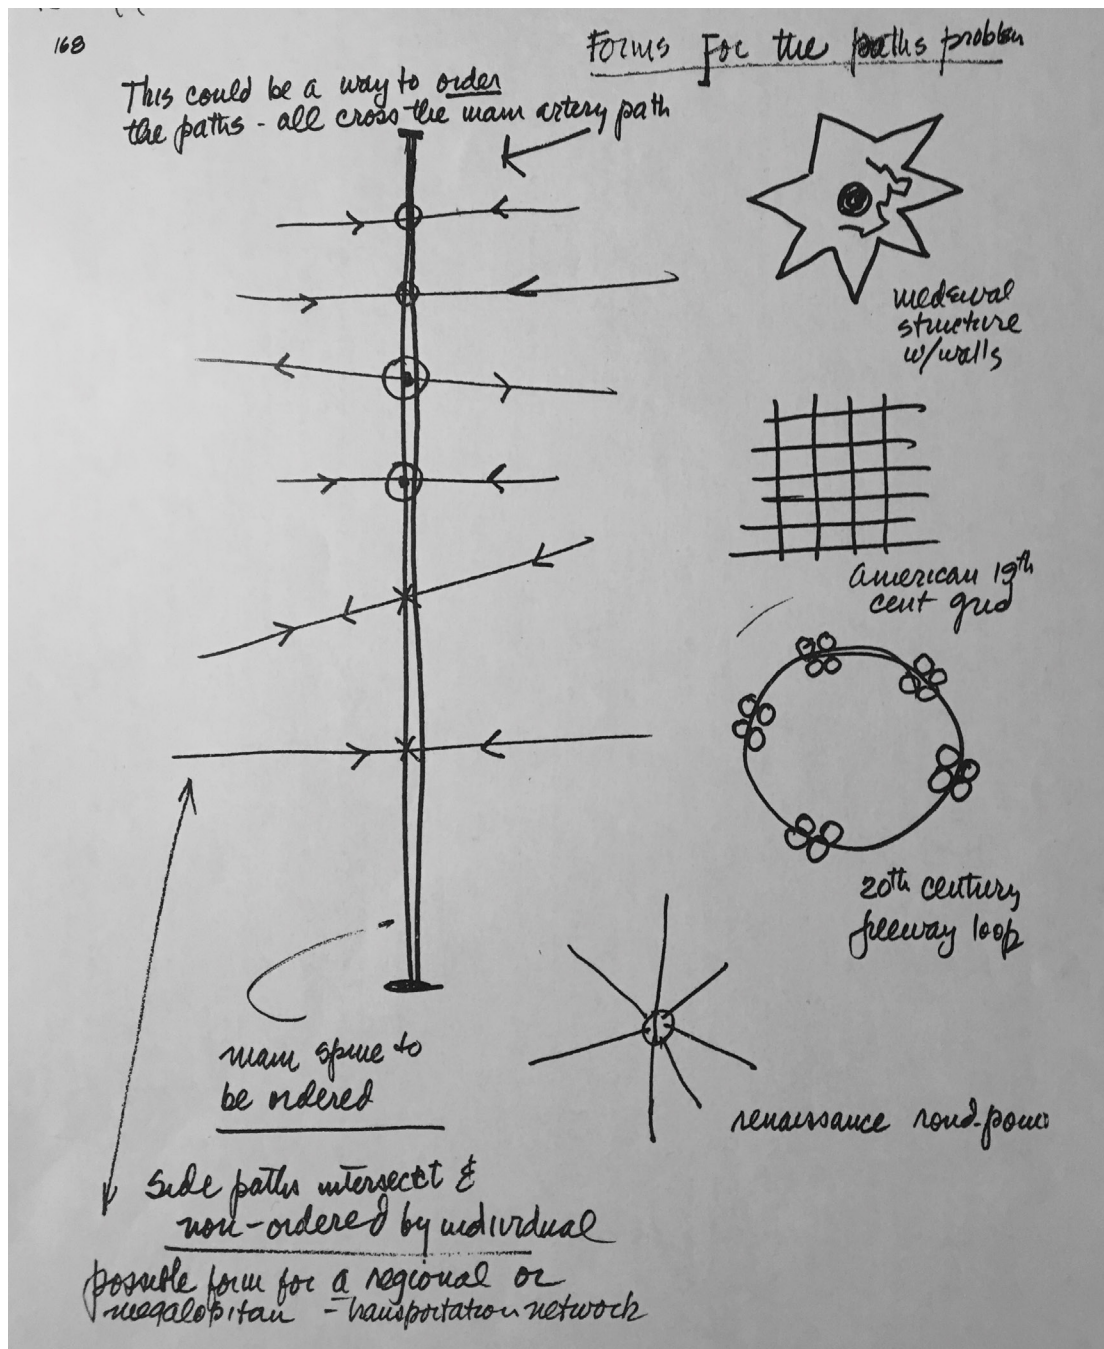 168
Forms For the paths problem
This could be a way to order
the paths - all cross the main artery path
medieval
structure
w/walls
American 19th
cent grid
20th century
freeway loop
renaissance rond-point
main spine to
be ordered
Side paths intersect &
non-ordered by individual
possible form for a regional or
megalopitan - transportation network